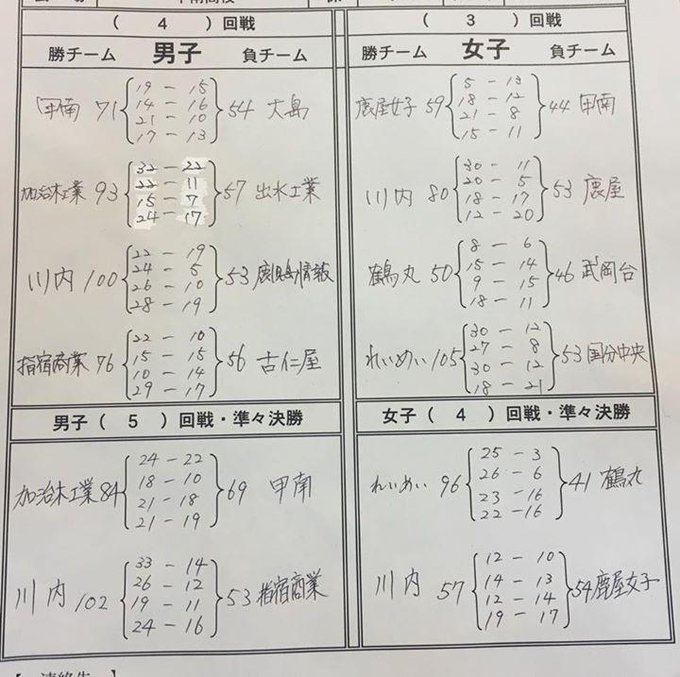 ( 4 ) 回戦
勝チーム 男子 負チーム
甲南 71 19 - 15 54 大島
14 - 16
21 - 10
17 - 13
加治木工業 93 32 - 22 57 出水工業
22 - 11
15 - 7
24 - 17
川内 100 22 - 19 53 鹿児島情報
24 - 5
26 - 10
28 - 19
指宿商業 76 22 - 10 56 古仁屋
15 - 15
10 - 14
29 - 17
( 3 ) 回戦
勝チーム 女子 負チーム
鹿屋女子 59 5 - 13 44 甲南
18 - 12
21 - 8
15 - 11
川内 80 30 - 11 53 鹿屋
20 - 5
18 - 17
12 - 20
鶴丸 50 8 - 6 46 武岡台
15 - 14
9 - 15
18 - 11
れいめい 105 30 - 12 53 国分中央
27 - 8
30 - 12
18 - 21
男子 ( 5 ) 回戦・準々決勝
加治木工業 84 24 - 22 69 甲南
18 - 10
21 - 18
21 - 19
川内 102 33 - 14 53 指宿商業
26 - 12
19 - 11
24 - 16
女子 ( 4 ) 回戦・準々決勝
れいめい 96 25 - 3 41 鶴丸
26 - 6
23 - 16
22 - 16
川内 57 12 - 10 54 鹿屋女子
14 - 13
12 - 14
19 - 17